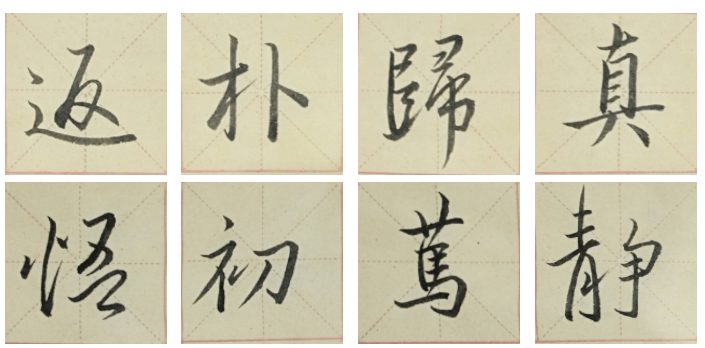 返朴歸真
悟初篤静